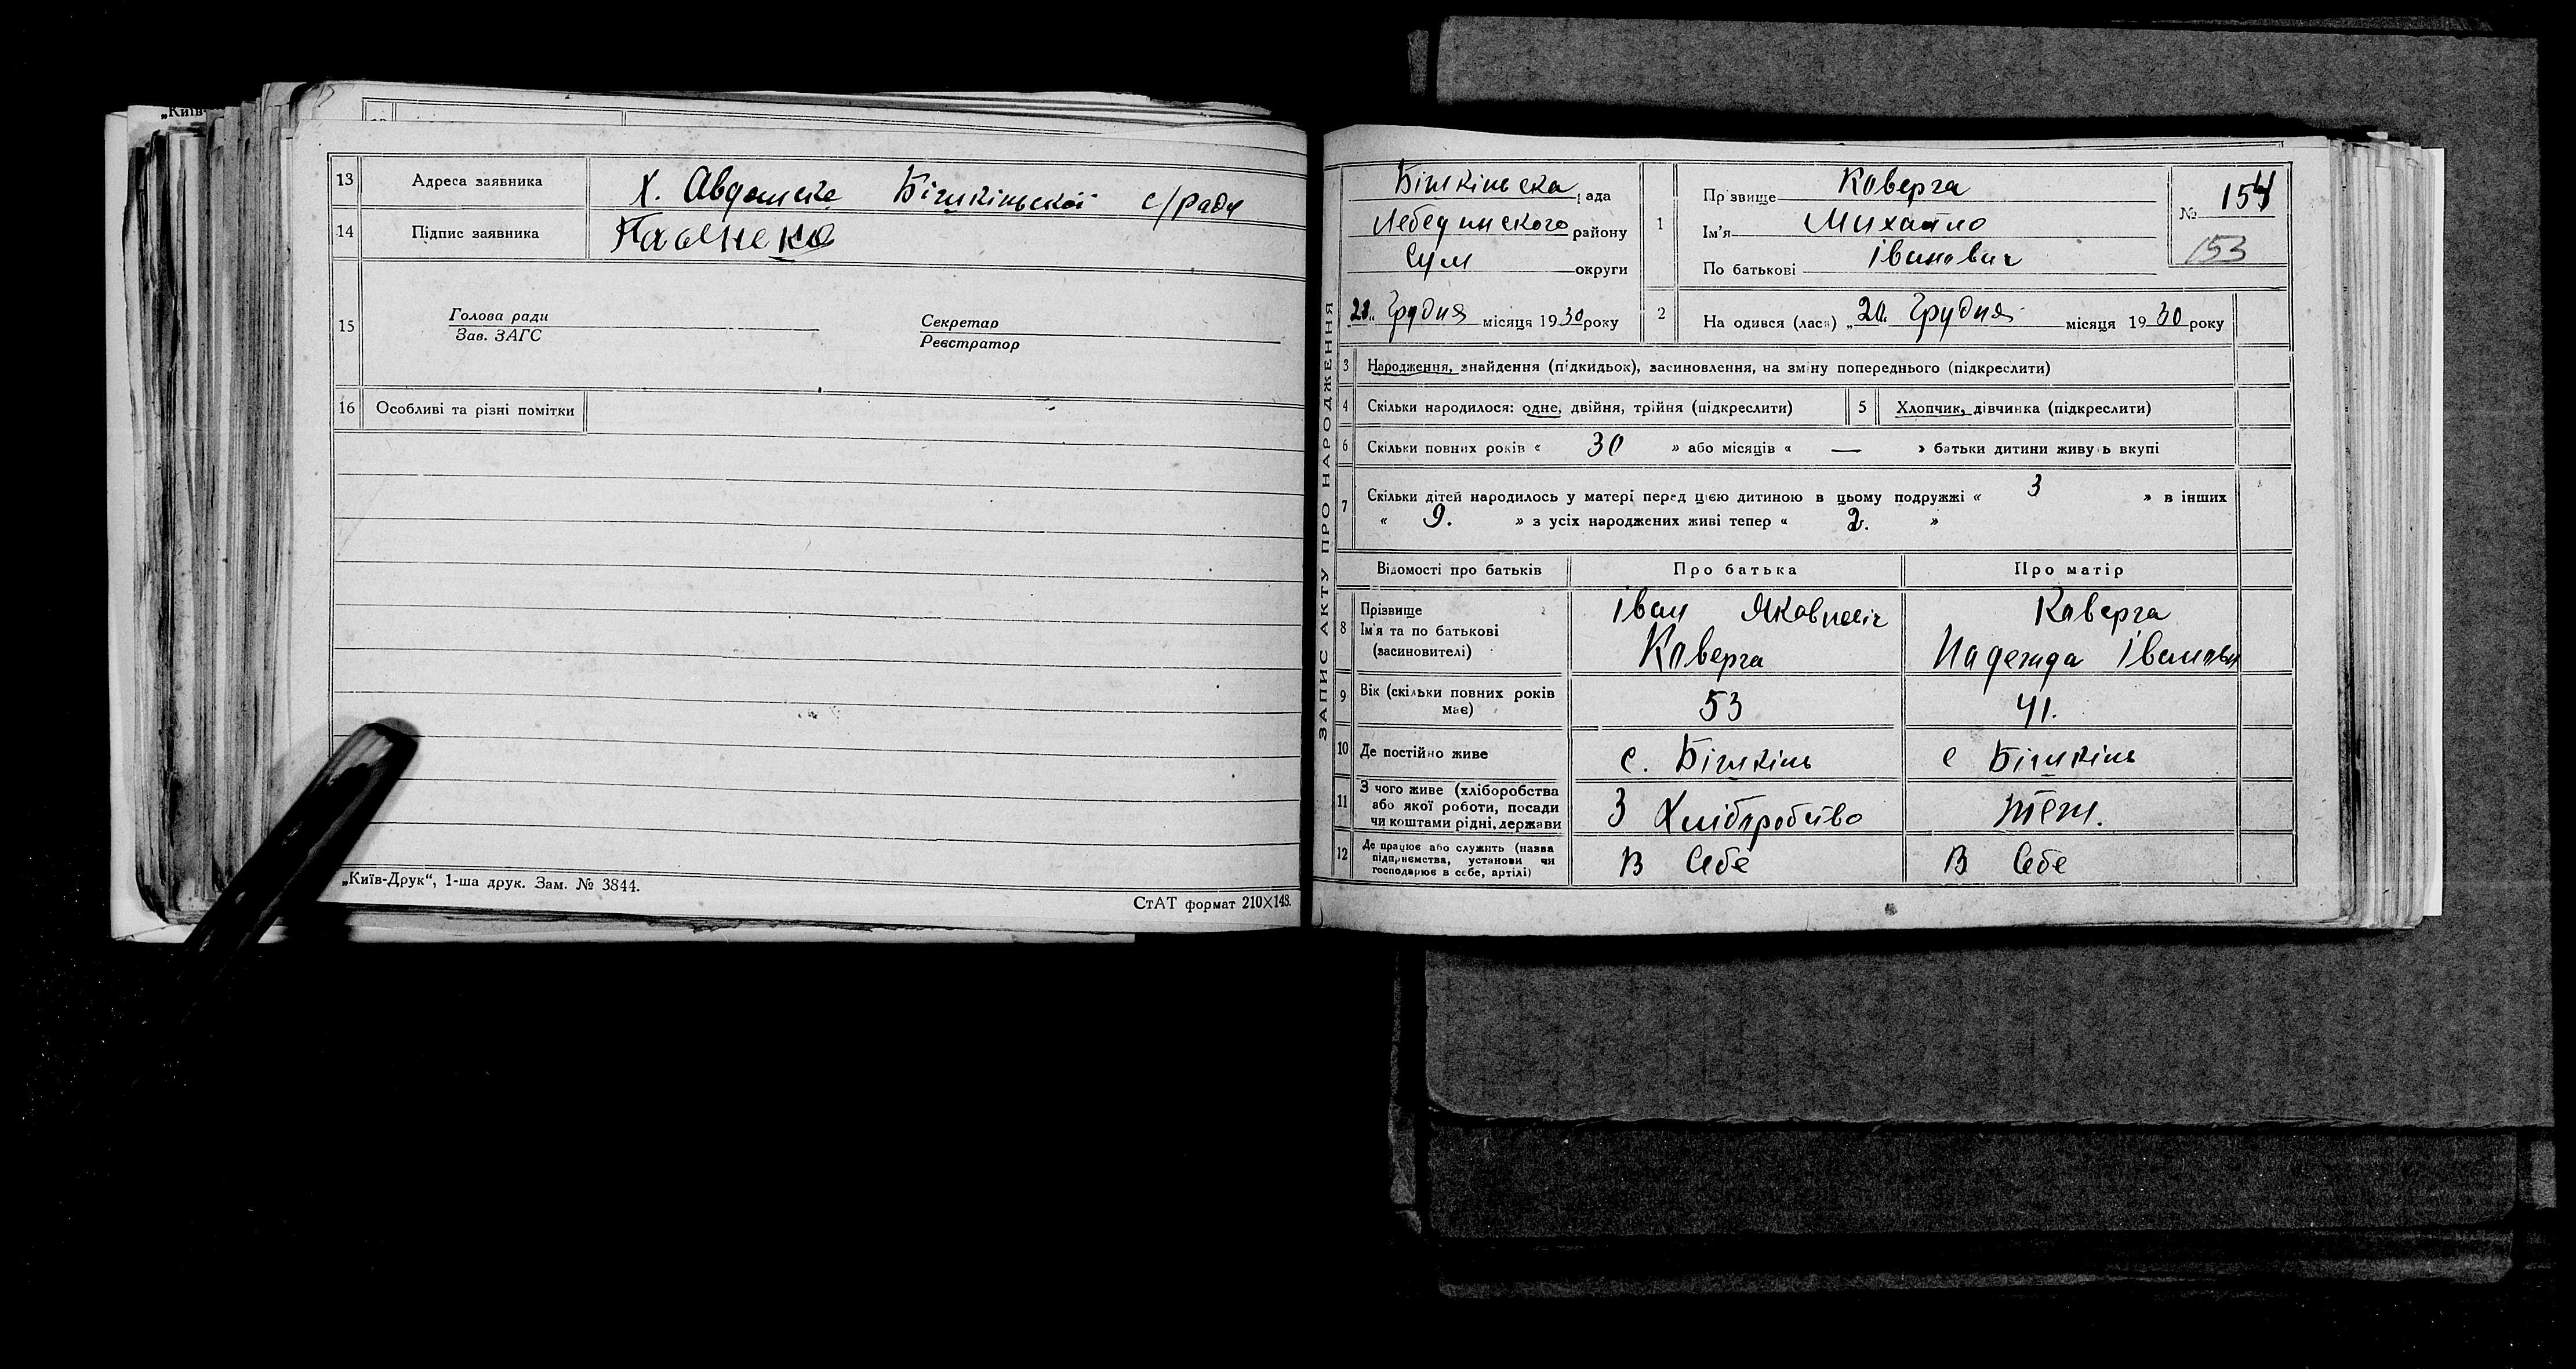 „Київ-
13 Адреса заявника Х. Авдонске Бішкіньскоі с/ради
14 Підпис заявника
15 Голова ради
Зав. ЗАГС
Секретар
Реєстратор
16 Особливі та різні помітки
„Київ-Друк“, 1-ша друк. Зам. № 3844.
СтАТ формат 210×148.
ЗАПИС АКТУ ПРО НАРОДЖЕННЯ
Бішкіньска рада
Лебединского району
Сум округи
1 Прізвище Коверга
Ім'я Михайло
По батькові Іванович
№ 154
153
23 Грудня місяця 1930 року
2 На одився (лася) „20“ Грудня місяця 1930 року
3 Народження, знайдення (підкидьок), засиновлення, на зміну попереднього (підкреслити)
4 Скільки народилося: одне, двійня, трійня (підкреслити)
5 Хлопчик, дівчинка (підкреслити)
6 Скільки повних років « 30 » або місяців « — » батьки дитини живуть вкупі
7 Скільки дітей народилось у матері перед цією дитиною в цьому подружжі « 3 » в інших
« 9. » з усіх народжених живі тепер « 2. »
Відомості про батьків Про батька Про матір
8 Прізвище
Ім'я та по батькові
(засиновителі)
Іван Яковлевіч
Коверга
Коверга
Надежда Івановн
9 Вік (скільки повних років
має)
53 41.
10 Де постійно живе с. Бішкінь с Бішкінь
11 З чого живе (хліборобства
або якої роботи, посади
чи коштами рідні, держави
З Хліборобство теж.
12 Де працює або служить (назва
підприємства, установи чи
господарює в себе, артілі)
В Себе В Себе